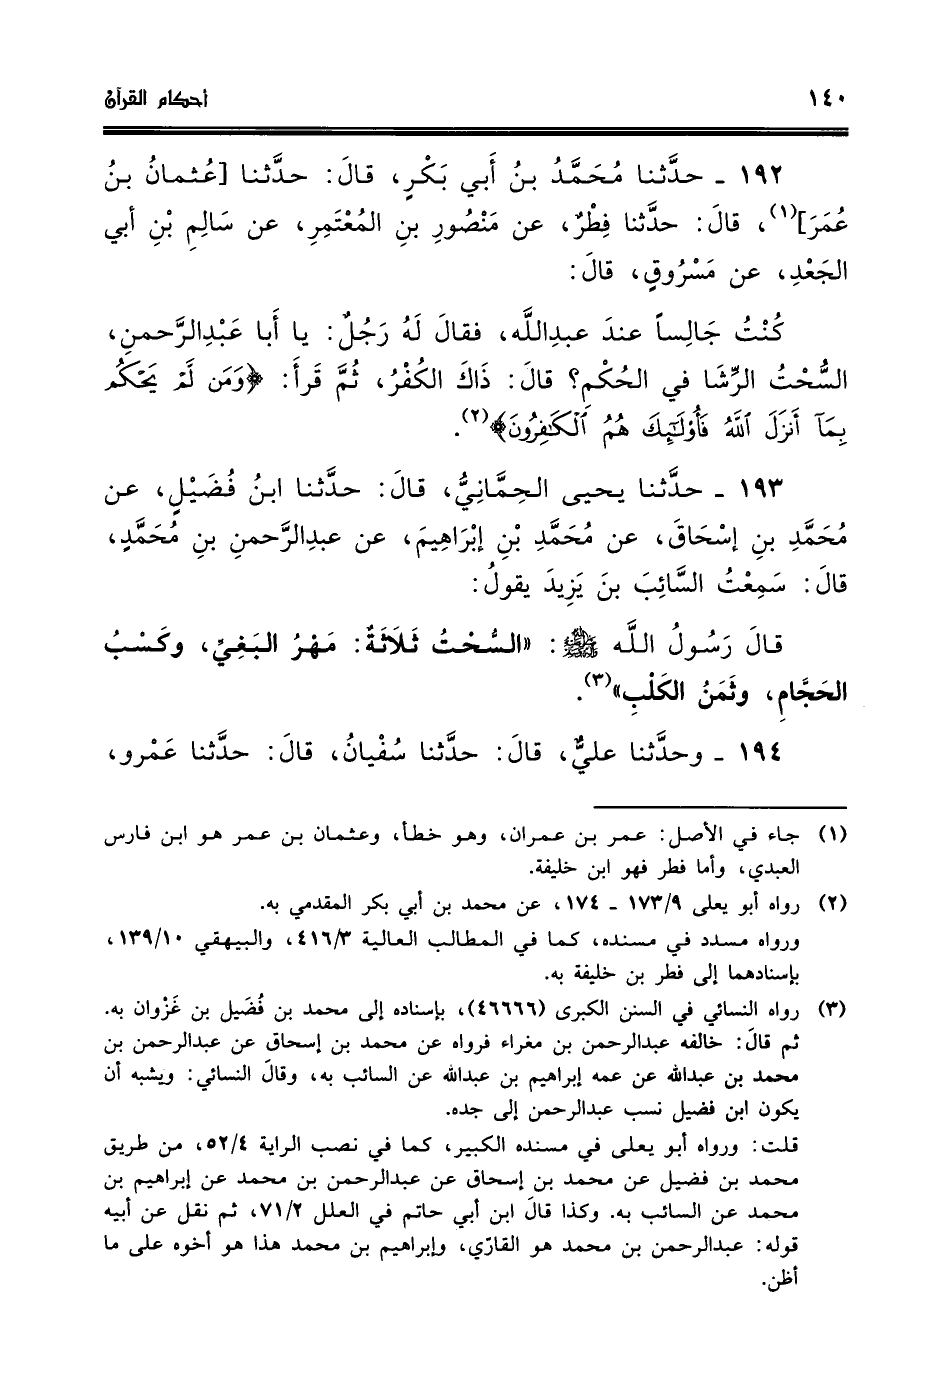 ١٤٠ أحكام القرآن
١٩٢ ـ حدَّثنا مُحَمَّدُ بنُ أَبي بَكْرٍ، قالَ: حدَّثنا [عُثمانُ بنُ
عُمَرَ]⁽¹⁾، قالَ: حدَّثنا فِطْرٌ، عن مَنْصُورِ بنِ المُعْتَمِرِ، عن سَالِمِ بْنِ أبي
الجَعْدِ، عن مَسْرُوقٍ، قالَ:
كُنْتُ جَالِساً عندَ عبداللَّه، فقالَ لَهُ رَجُلٌ: يا أَبا عَبْدِالرَّحمنِ،
السُّحْتُ الرِّشَا في الحُكْمِ؟ قالَ: ذَاكَ الكُفْرُ، ثُمَّ قَرأَ: ﴿وَمَن لَّمْ يَحْكُم
بِمَآ أَنزَلَ ٱللَّهُ فَأُوْلَٰٓئِكَ هُمُ ٱلْكَٰفِرُونَ﴾⁽²⁾.
١٩٣ ـ حدَّثنا يحيى الحِمَّانِيُّ، قالَ: حدَّثنا ابنُ فُضَيْلٍ، عن
مُحَمَّدِ بنِ إسْحَاقَ، عن مُحَمَّدِ بْنِ إبْرَاهِيمَ، عن عبدِالرَّحمنِ بنِ مُحَمَّدٍ،
قالَ: سَمِعْتُ السَّائِبَ بنَ يَزِيدَ يقولُ:
قالَ رَسُولُ اللَّه ﷺ: «السُّحْتُ ثَلَاثَةٌ: مَهْرُ البَغِيِّ، وكَسْبُ
الحَجَّامِ، وثَمَنُ الكَلْبِ»⁽³⁾.
١٩٤ ـ وحدَّثنا عليٌّ، قالَ: حدَّثنا سُفْيانُ، قالَ: حدَّثنا عَمْرو،
(١) جاء في الأصل: عمر بن عمران، وهو خطأ، وعثمان بن عمر هو ابن فارس
العبدي، وأما فطر فهو ابن خليفة.
(٢) رواه أبو يعلى ١٧٣/٩ ـ ١٧٤، عن محمد بن أبي بكر المقدمي به.
ورواه مسدد في مسنده، كما في المطالب العالية ٤١٦/٣، والبيهقي ١٣٩/١٠،
بإسنادهما إلى فطر بن خليفة به.
(٣) رواه النسائي في السنن الكبرى (٤٦٦٦٦)، بإسناده إلى محمد بن فُضَيل بن غَزْوان به.
ثم قالَ: خالفه عبدالرحمن بن مغراء فرواه عن محمد بن إسحاق عن عبدالرحمن بن
محمد بن عبدالله عن عمه إبراهيم بن عبدالله عن السائب به، وقالَ النسائي: ويشبه أن
يكون ابن فضيل نسب عبدالرحمن إلى جده.
قلت: ورواه أبو يعلى في مسنده الكبير، كما في نصب الراية ٥٢/٤، من طريق
محمد بن فضيل عن محمد بن إسحاق عن عبدالرحمن بن محمد عن إبراهيم بن
محمد عن السائب به. وكذا قالَ ابن أبي حاتم في العلل ٧١/٢، ثم نقل عن أبيه
قوله: عبدالرحمن بن محمد هو القاري، وإبراهيم بن محمد هذا هو أخوه على ما
أظن.